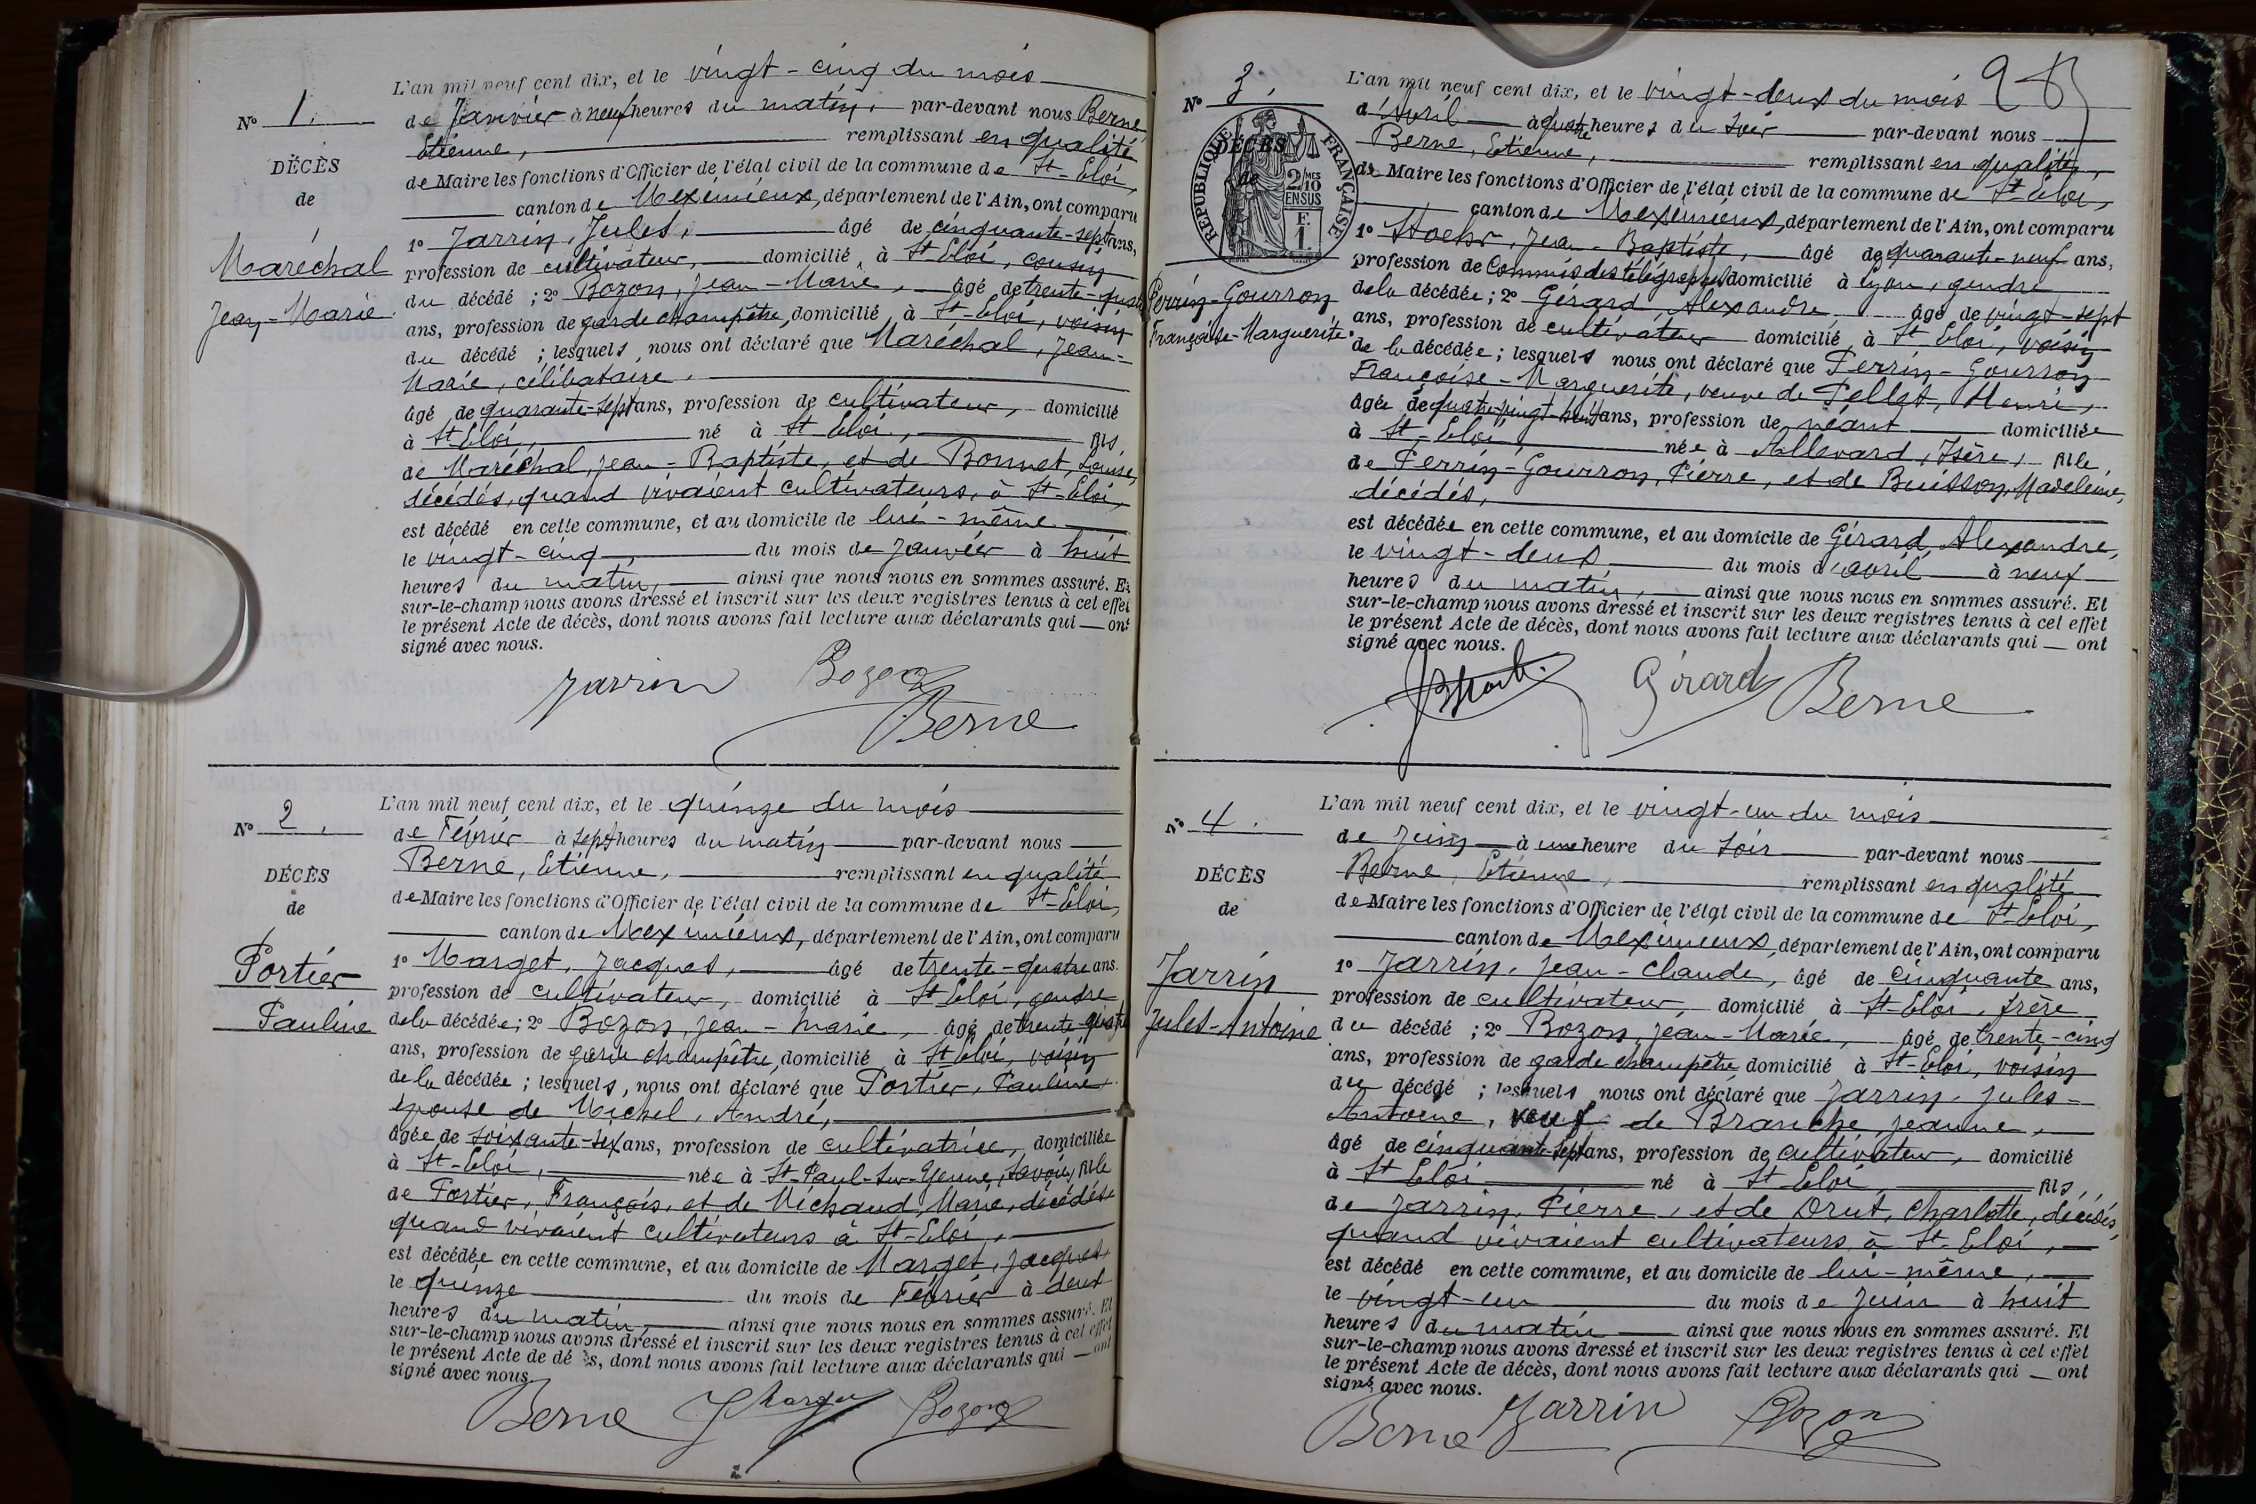 L'an mil neuf cent dix, et le vingt-cinq du mois
N° 1.
de Janvier à neuf heures du matin, par-devant nous Berne
Etienne, remplissant en qualité
DÉCÈS
de Maire les fonctions d'Officier de l'état civil de la commune de St-Eloi,
de
canton de Meximieux, département de l'Ain, ont comparu
1° Jarrin, Jules, âgé de cinquante-sept ans,
Maréchal
profession de cultivateur, domicilié à St-Eloi, cousin
Jean-Marie.
du décédé ; 2° Bozon, Jean-Marie, âgé de trente-quatre
ans, profession de garde champêtre, domicilié à St-Eloi, voisin
du décédé ; lesquels nous ont déclaré que Maréchal, Jean-
Marie, célibataire.
âgé de quarante-sept ans, profession de cultivateur, domicilié
à St-Eloi, né à St Eloi, fils
de Maréchal, Jean-Baptiste, et de Bonnet, Louise,
décédés, quand vivaient cultivateurs, à St-Eloi,
est décédé en cette commune, et au domicile de lui-même.
le vingt-cinq, du mois de Janvier à huit
heures du matin, ainsi que nous nous en sommes assuré. Et
sur-le-champ nous avons dressé et inscrit sur les deux registres tenus à cet effet
le présent Acte de décès, dont nous avons fait lecture aux déclarants qui — ont
signé avec nous.
Jarrin Bozon
Berne
L'an mil neuf cent dix, et le quinze du mois
N° 2.
de Février à sept heures du matin par-devant nous
Berne, Etienne, remplissant en qualité
DÉCÈS
de Maire les fonctions d'Officier de l'état civil de la commune de St-Eloi,
de
canton de Meximieux, département de l'Ain, ont comparu
1° Marget, Jacques, âgé de trente-quatre ans.
Portier
profession de cultivateur, domicilié à St-Eloi, gendre
Pauline
de la décédée ; 2° Bozon, Jean-Marie, âgé de trente-quatre
ans, profession de garde champêtre, domicilié à St-Eloi, voisin
de la décédée ; lesquels, nous ont déclaré que Portier, Pauline,
épouse de Michel, André,
âgée de soixante-six ans, profession de cultivatrice, domiciliée
à St-Eloi, née à St-Paul-sur-Yenne, Savoie, fille
de Portier, François, et de Michaud, Marie, décédés
quand vivaient cultivateurs à St-Eloi,
est décédée en cette commune, et au domicile de Marget, Jacques,
le quinze du mois de Février à deux
heures du matin, ainsi que nous nous en sommes assuré. Et
sur-le-champ nous avons dressé et inscrit sur les deux registres tenus à cet effet
le présent Acte de dé s, dont nous avons fait lecture aux déclarants qui — ont
signé avec nous.
Berne J Marget Bozon
2
285
L'an mil neuf cent dix, et le vingt-deux du mois
N° 3.
d'Avril à quatre heures du soir par-devant nous
Berne, Etienne, remplissant en qualité
DÉCÈS
de
RÉPUBLIQUE FRANÇAISE
2/10 MES
EN SUS
F.
1.
de Maire les fonctions d'Officier de l'état civil de la commune de St-Eloi,
canton de Meximieux, département de l'Ain, ont comparu
1° Stoehr, Jean-Baptiste, âgé de quarante-neuf ans,
profession de Commis des télégraphes domicilié à Lyon, gendre
Perrin-Gourron
de la décédée ; 2° Gérard, Alexandre âgé de vingt-sept
Françoise-Marguerite.
ans, profession de cultivateur domicilié à St-Eloi, voisin
de la décédée ; lesquels nous ont déclaré que Perrin-Gourron
Françoise-Marguerite, veuve de Pellet, Henri,
âgée de quatre-vingt-huit ans, profession de néant domiciliée
à St-Eloi née à Allevard, Isère, fille,
de Perrin-Gourron, Pierre, et de Buisson, Madeleine,
décédés,
est décédée en cette commune, et au domicile de Gérard, Alexandre,
le vingt-deux du mois d'avril à neuf
heures du matin, ainsi que nous nous en sommes assuré. Et
sur-le-champ nous avons dressé et inscrit sur les deux registres tenus à cet effet
le présent Acte de décès, dont nous avons fait lecture aux déclarants qui — ont
signé avec nous.
Gérard Berne
L'an mil neuf cent dix, et le vingt-un du mois
N° 4.
de Juin à une heure du soir par-devant nous
Berne, Etienne, remplissant en qualité
DÉCÈS
de Maire les fonctions d'Officier de l'état civil de la commune de St-Eloi,
de
canton de Meximieux, département de l'Ain, ont comparu
1° Jarrin, Jean-Claude, âgé de cinquante ans,
Jarrin
profession de cultivateur, domicilié à St-Eloi, frère
Jules-Antoine
du décédé ; 2° Bozon, Jean-Marie, âgé de trente-cinq
ans, profession de garde champêtre domicilié à St-Eloi, voisin
du décédé ; lesquels nous ont déclaré que Jarrin, Jules-
Antoine, veuf de Branche, Jeanne,
âgé de cinquante-sept ans, profession de cultivateur, domicilié
à St Eloi né à St-Eloi, fils,
de Jarrin, Pierre, et de Drut, Charlotte, décédés,
quand vivaient cultivateurs à St-Eloi,
est décédé en cette commune, et au domicile de lui-même,
le vingt-un du mois de Juin à huit
heures du matin ainsi que nous nous en sommes assuré. Et
sur-le-champ nous avons dressé et inscrit sur les deux registres tenus à cet effet
le présent Acte de décès, dont nous avons fait lecture aux déclarants qui — ont
signé avec nous.
Berne Jarrin Bozon